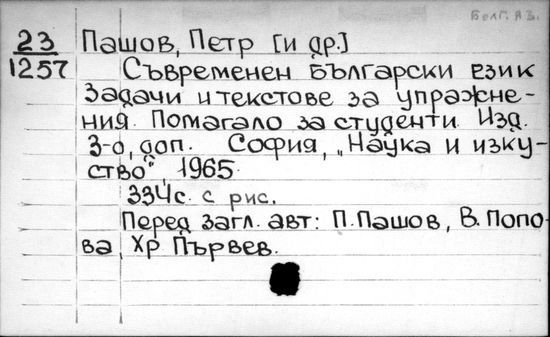 Бълг. яз.
23 Пашов, Петр [и др.]
1257 Съвременен български език
Задачи и текстове за упражне-
ния. Помагало за студенти. Изд.
3-о, доп. София, „Наука и изку-
ство", 1965.
334с. с рис.
Перед загл. авт: П. Пашов, В. Попо-
ва, Хр Първев.